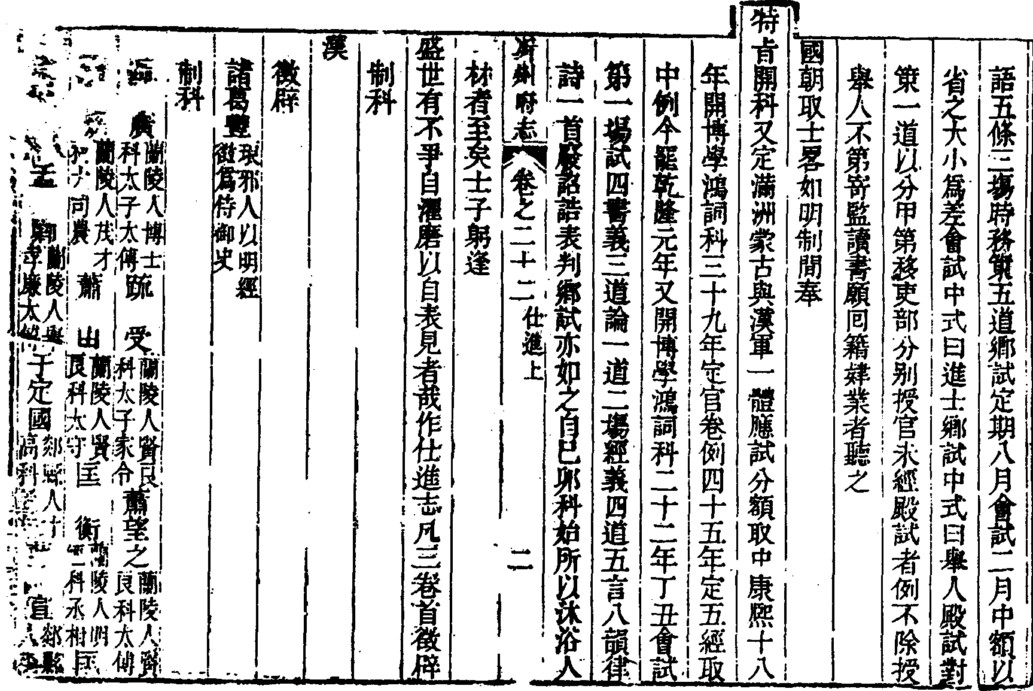 語五條三塲時務策五道鄉試定期八月會試二月中額以
省之大小爲差會試中式曰進士鄉試中式曰舉人殿試對
策一道以分甲第移吏部分別授官未經殿試者例不除授
舉人不第寄監讀書願回籍肄業者聽之
國朝取士畧如明制間奉
特旨開科又定滿洲蒙古與漢軍一體應試分額取中康熙十八
年開博學鴻詞科三十九年定官卷例四十五年定五經取
中例今罷乾隆元年又開博學鴻詞科二十二年丁丑會試
第一塲試四書義三道論一道二塲經義四道五言八韻律
詩一首殿詔誥表判鄉試亦如之自己卯科始所以沐浴人
沂州府志 卷之二十二 仕進上 二
材者至矣士子躬逢
盛世有不爭自濯磨以自表見者哉作仕進志凡三卷首徵辟
制科
漢
徵辟
諸葛豐 琅邪人以明經徵爲侍御史
制科
廣 蘭陵人博士科太子太傅 疏受 蘭陵人賢良科太子家令 蕭望之 蘭陵人賢良科太傅
蘭陵人茂才 司農 蕭山 蘭陵人賢良科太守 匡衡 蘭陵人明 科丞相
孟 蘭陵人 孝廉太 于定國 郯 人 高科 宣 郯